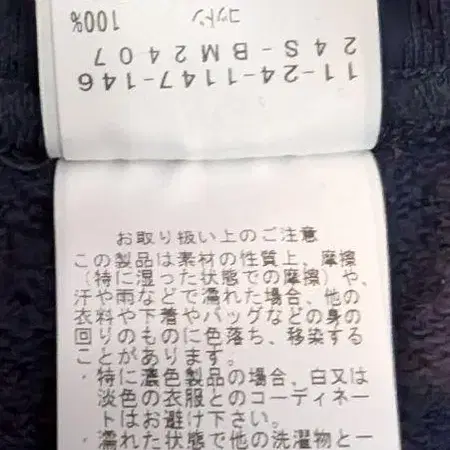 11-24-1147-146
24S-BM2407
コットン 100%
お取り扱い上のご注意
この製品は素材の性質上、摩擦
（特に湿った状態での摩擦）や、
汗や雨などで濡れた場合、他の
衣料や下着やバッグなどの身の
回りのものに色落ち、移染する
ことがあります。
・特に濃色製品の場合、白又は
淡色の衣服とのコーディネー
トはお避け下さい。
・濡れた状態で他の洗濯物と一